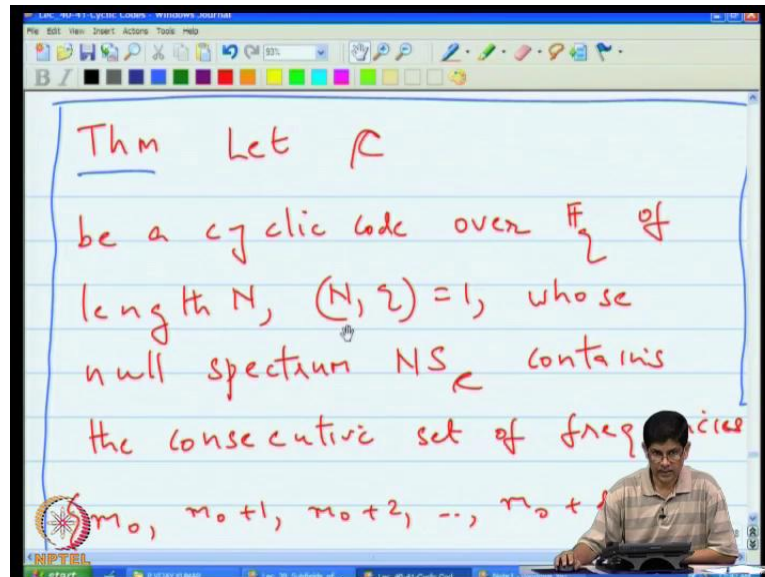 Lec_40-41-Cyclic Codes - Windows Journal
File Edit View Insert Actions Tools Help
93%
B I
Thm Let C
be a cyclic code over F_q of
length N, (N, q) = 1, whose
null spectrum NS_C contains
the consecutive set of frequencies
{m_0, m_0 + 1, m_0 + 2, .., m_0 +
NPTEL
start